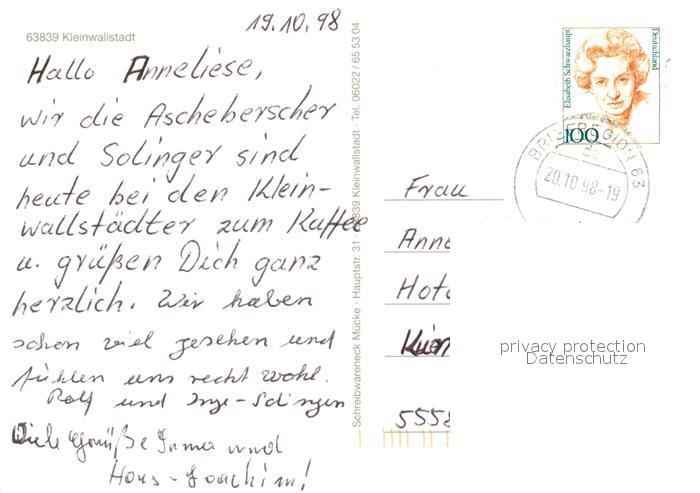 19.10.98
63839 Kleinwallstadt
Hallo Anneliese,
wir die Ascheberscher
und Solinger sind
heute bei den Klein-
wallstädter zum Kaffee
u. grüßen Dich ganz
herzlich. Wir haben
schon viel gesehen und
fühlen uns recht wohl.
Rolf und Inge-Solingen
Viele Grüße Irma und
Hans-Joachim!
Schreibwareneck Mücke · Hauptstr. 31 · 63839 Kleinwallstadt · Tel. 06022/65 53 04
Elisabeth Schwarzhaupt
Deutschland
100
BRIEFREGION 63
20.10.98-19
Frau
Anne
Hote
5558
privacy protection
Datenschutz